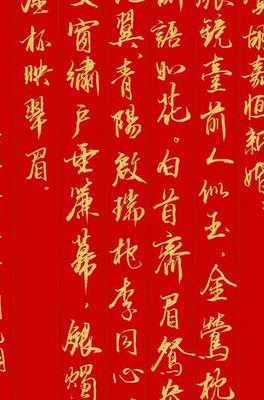 胡嘉恒新婚
鏡臺前人似玉,金鶯枕
語如花。白首齊眉鴛
翼,青陽啟瑞桃李同心
窗繡戶垂簾幕,銀燭
杯映翠眉。